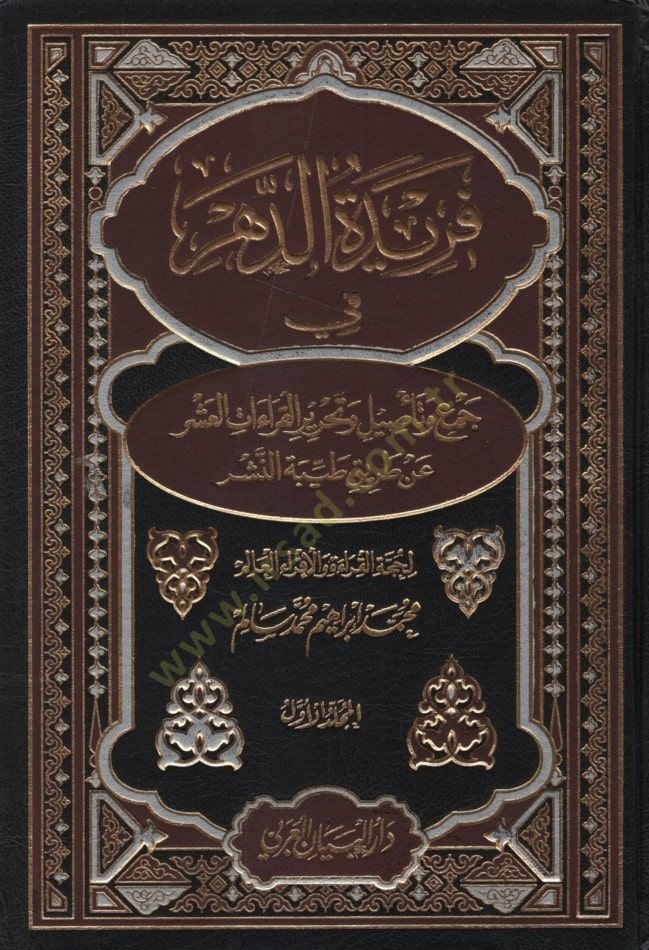 فَرِيْدَةُ الدَّهْرِ
فِي
جَمْعِ وَتَأْصِيلِ وَتَحْرِيْرِ القِرَاءَاتِ العَشْرِ
عَنْ طَرِيْقِ طَيِّبَةِ النَّشْرِ
لحجة القراءة والإقراء العالم
محمد إبراهيم محمد سالم
المجلد الأول
دار البيان العربي
www.irsad.com.tr